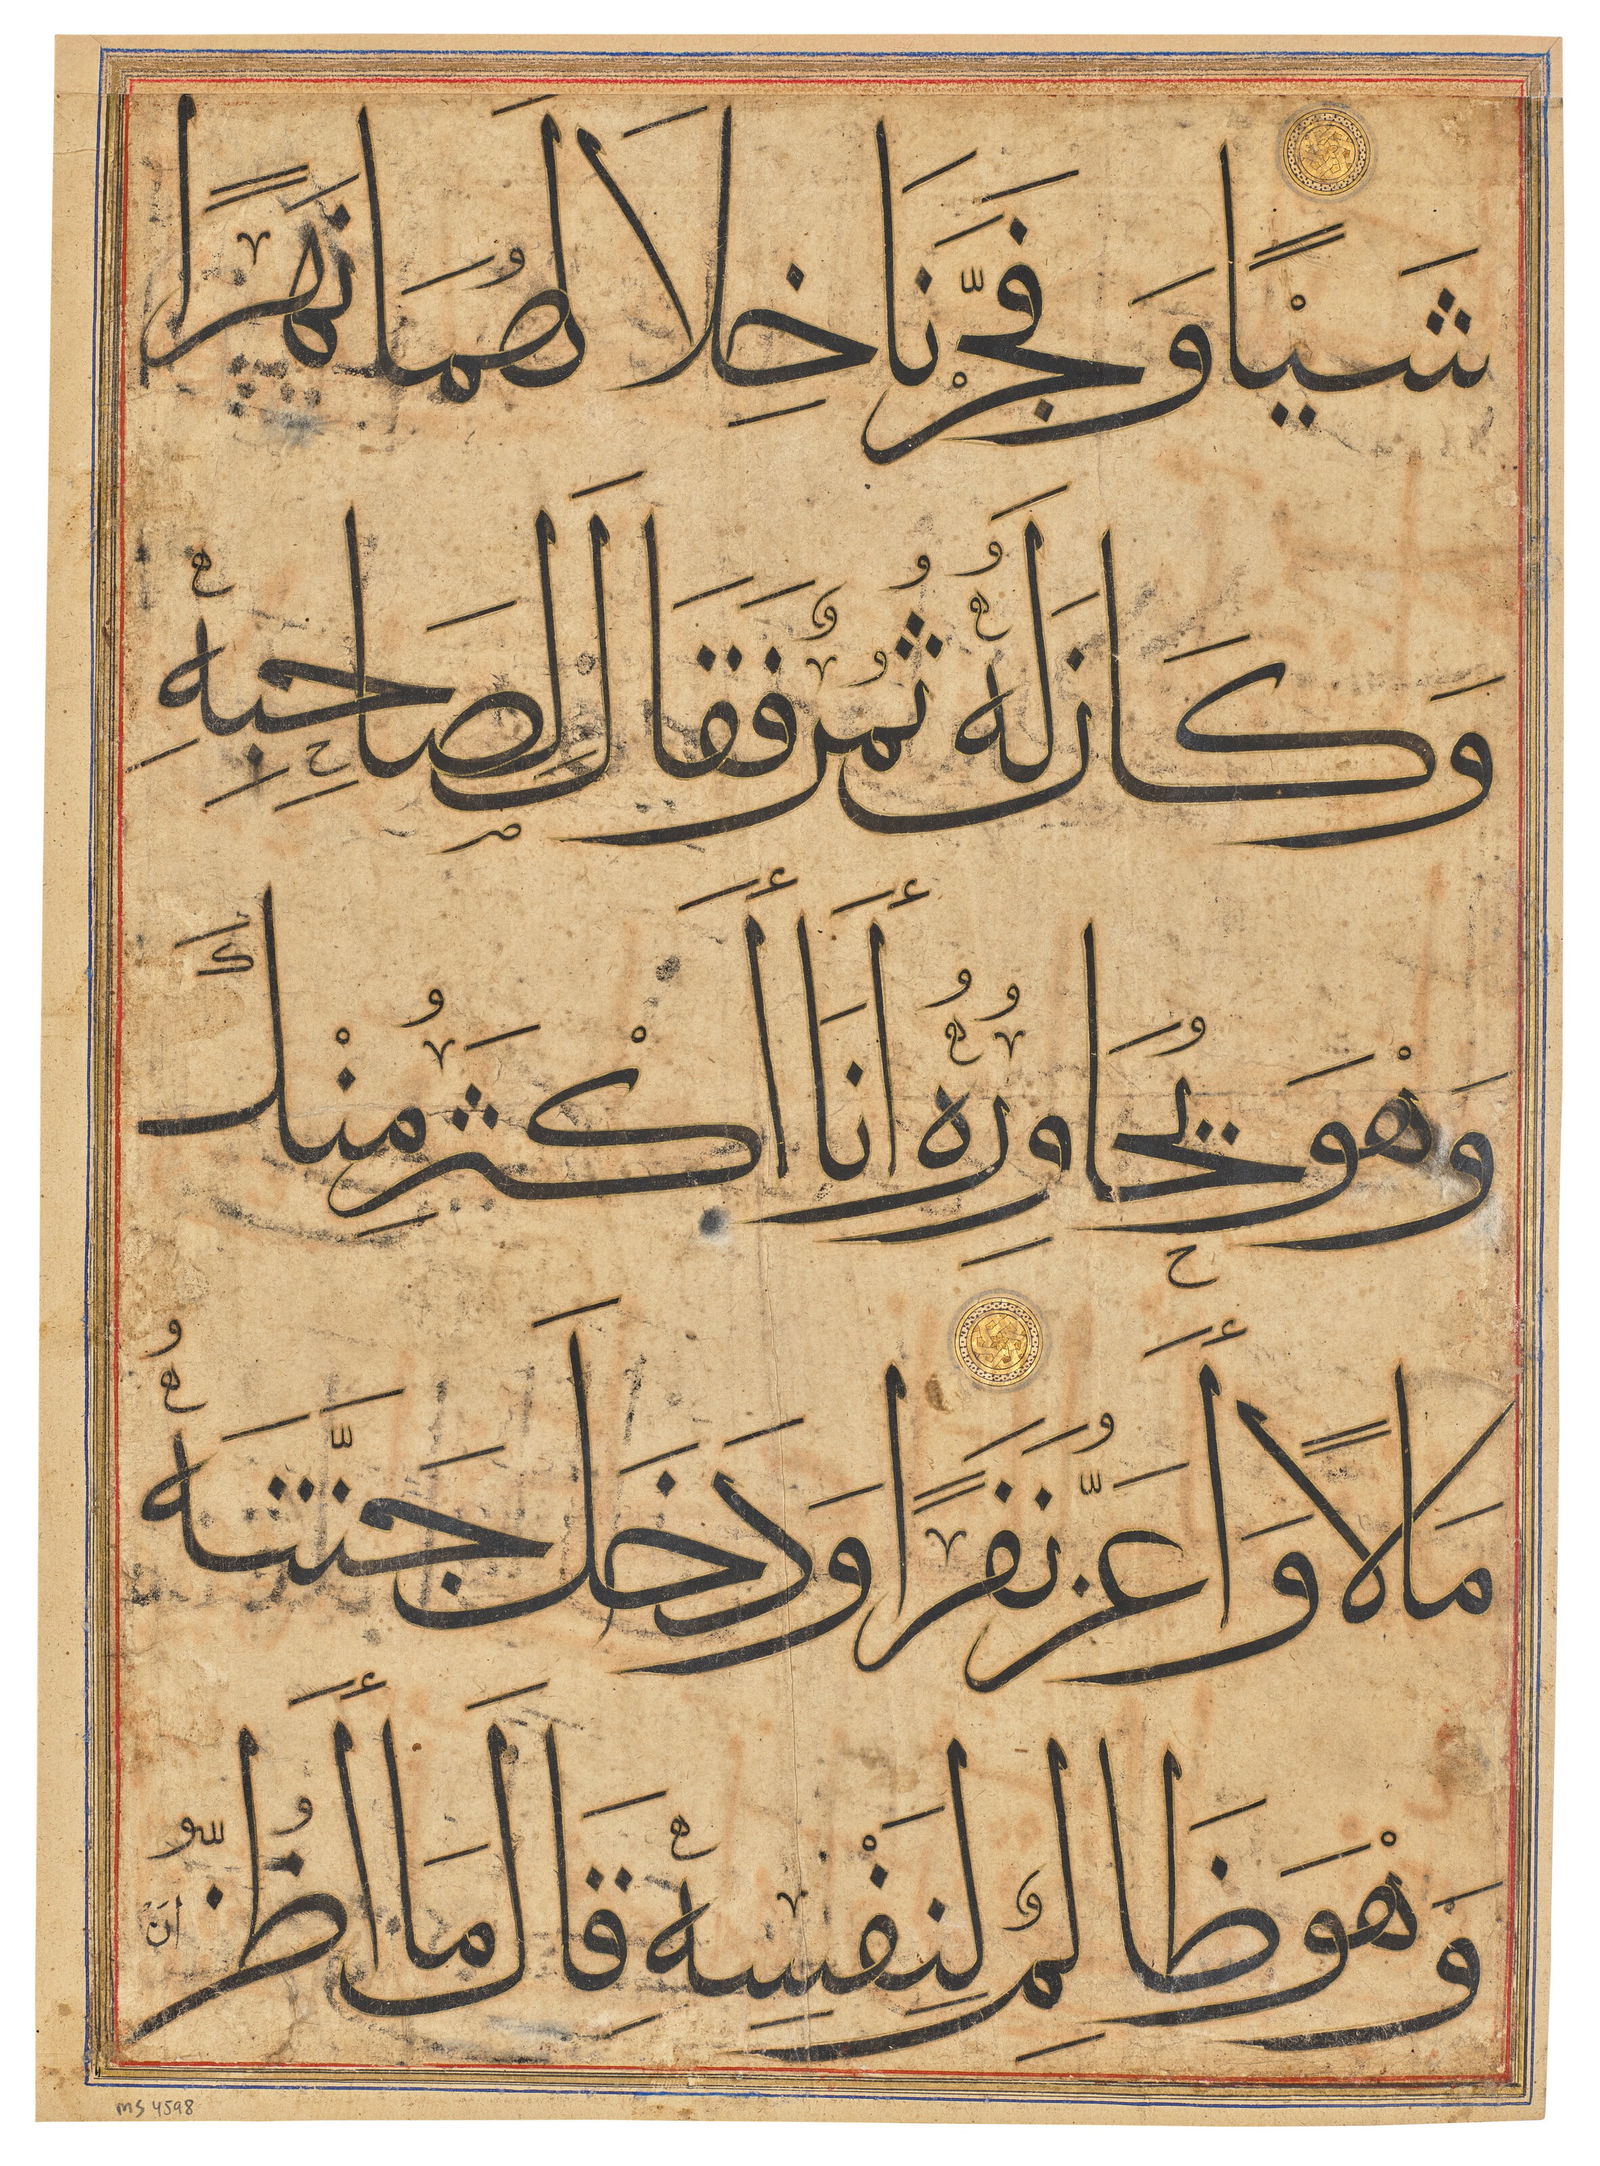 شَيْئًا وَفَجَّرْنَا خِلَالَهُمَا نَهَرًا
وَكَانَ لَهُ ثُمُرٌ فَقَالَ لِصَاحِبِهِ
وَهْوَ يُحَاوِرُهُ أَنَا أَكْثَرُ مِنْكَ
مَالًا وَأَعَزُّ نَفَرًا وَدَخَلَ جَنَّتَهُ
وَهْوَ ظَالِمٌ لِنَفْسِهِ قَالَ مَا أَظُنُّ
أَنْ
MS 4598